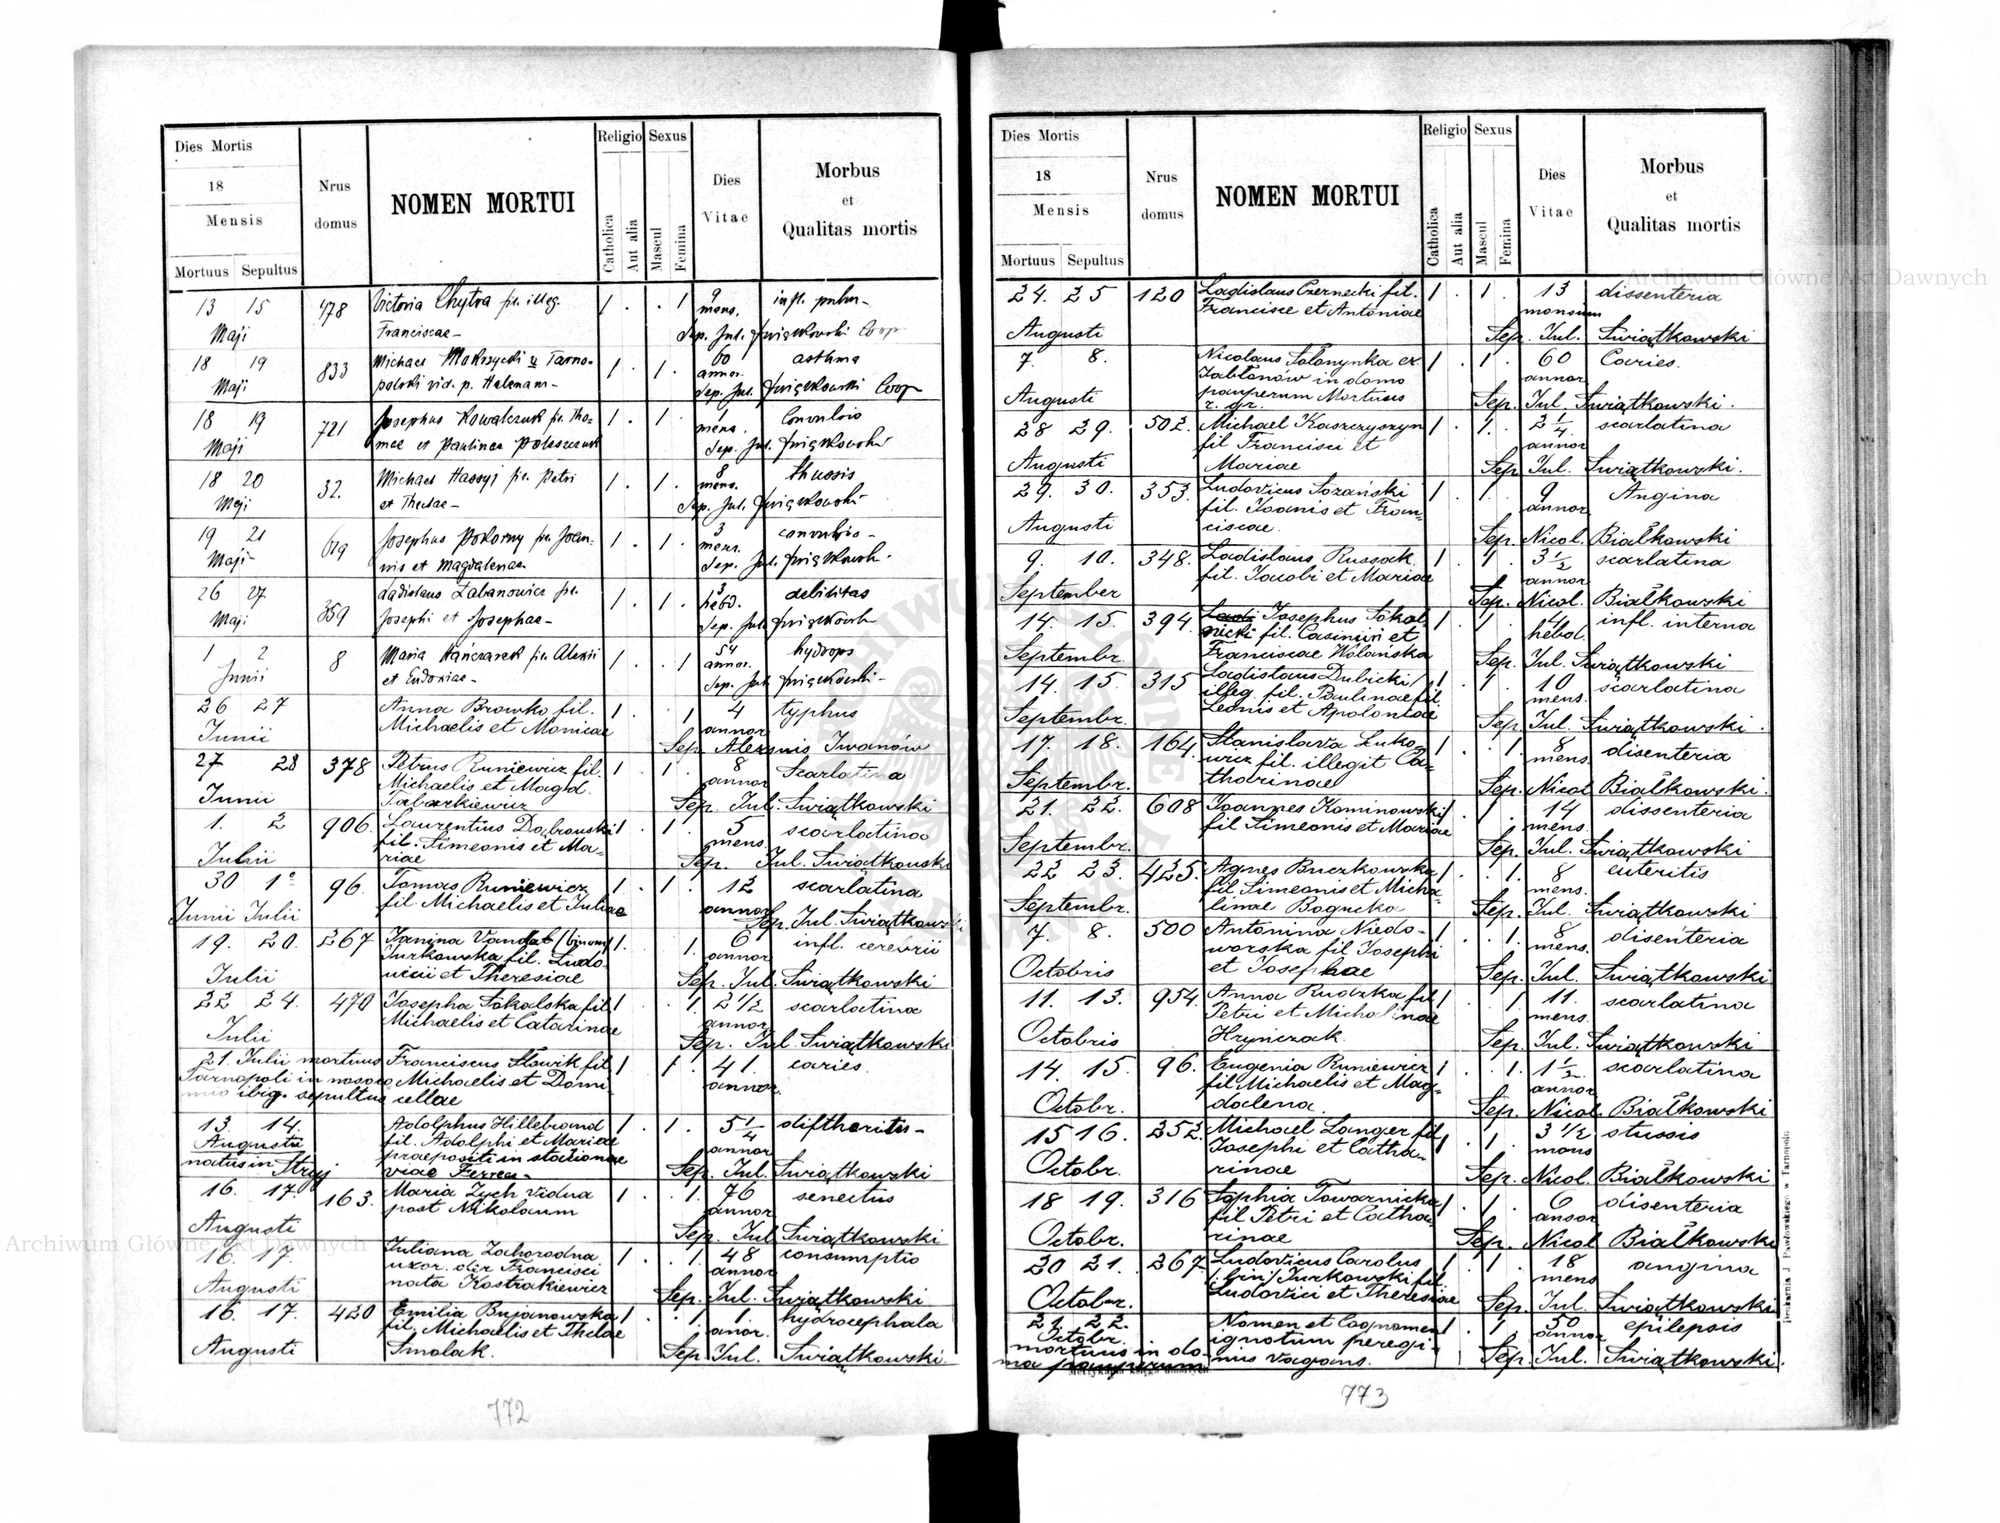 Dies Mortis
18
Mensis
Mortuus Sepultus
Nrus domus
NOMEN MORTUI
Religio
Catholica
Aut alia
Sexus
Mascul
Femina
Dies Vitae
Morbus
et
Qualitas mortis
13 15 478 Victoria Chytra fil. illeg. 1 . . 1 9 infl. pulm-
Maji Franciscae- mens. Sep. Jul. Świątkowski Coop
18 19 833 Michael Mokrzycki u Tarno- 1 . 1 . 60 asthma
Maji polski vid. p. Helenam- annor. Sep. Jul. Świątkowski Coop
18 19 721 Josephus Kowalczuk fil. Tho- 1 . 1 . 1 Convulsio
Maji mae et Paulinae mens. Sep. Jul. Świątkowski
18 20 32. Michael Hassyj fil. Petri 1 . 1 . 8 thussis
Maji et Theclae- mens. Sep. Jul. Świątkowski
19 21 619 Josephus Pokorny fil. Joan- 1 . 1 . 3 convulsio-
Maji- nis et Magdalenae mens. Sep. Jul. Świątkowsk
26 27 359 Ladislaus Labanowicz fil. 1 . 1 . 3 debilitas
Maji Josephi et Josephae- hebd. Sep. Jul. Świątkowsk
1 2 8 Maria Hańczarek fil. Alexii 1 . . 1 54 hydrops
Junii et Eudoxiae- annor. Sep. Jul. Świątkowski-
26 27 Anna Browko fil. 1 . 1 4 typhus
Junii Michaelis et Monicae annor
Sep. Alexsius Iwanów
27 28 378 Petrus Runiewicz fil. 1 . 1 . 8 Scarlatina
Michaelis et Magd. annor
Junii Tabarkiewicz Sep. Jul. Świątkowski
1. 2 906. Laurentius Dabrowski 1 . 1 . 5 scarlatina
fil. Simeonis et Ma- mens.
Julii riae Sep. Jul. Świątkowski
30 1º 96. Tomas Runiewicz 1 . 1 . 12 scarlatina
fil. Michaelis et Juliae annor
Junii Julii Sep. Jul. Świątkowski
19. 20. 267 Janina Vandal (binom) 1 . 1. 6 infl. cerebrii
Jurkowska fil. Ludo- annor
Julii vicii et Theresiae Sep. Jul. Świątkowski
22 24. 470 Josepha Sokalska fil 1 . 1. 2 1/2 scarlatina
Michaelis et Catarinae annor
Julii Sep. Jul. Świątkowski
21. Julii mortuus Franciscus Sławik fil 1 1 . 41. caries.
Tarnopoli in nosoco Michaelis et Domi- annor.
mio ibiq. sepultus cellae
13. 14. Adolphus Hillebrand 1 . 1 . 5 1/4 diftheritis-
Augusti fil. Adolphi et Mariae annor
natus in Stryj praepositi in stationae
viae Ferrea- Sep. Jul. Świątkowski
16. 17. 163. Maria Zych vidua 1 . 1. 76 senectus
post Nikolaum annor
Augusti Sep. Jul Świątkowski
16. 17. Juliana Zahorodna 1 . 1. 48 consumptio
uxor. der Francisci annor
Augusti nata Kostrakiewicz Sep. Jul. Świątkowski
16. 17. 420 Emilia Bujanowska 1 . 1 1 hydrocephala
fil. Michaelis et Theclae anor.
Augusti Smolak. Sep. Jul. Świątkowski.
772
Dies Mortis
18
Mensis
Mortuus Sepultus
Nrus domus
NOMEN MORTUI
Religio
Catholica
Aut alia
Sexus
Mascul
Femina
Dies Vitae
Morbus
et
Qualitas mortis
24. 25 120 Ladislaus Czernecki fil. 1 . 1 . 13 dissenteria
Francisce et Antoniae mensum
Augusti Sep. Jul. Świątkowski
7. 8. Nicolaus Sołonynka ex 1 . 1 . 60 Caries.
Jabłonów in domo annor
Augusti pauperum Mortuus
r. gr. Sep. Jul. Świątkowski.
28 29. 502. Michael Kaszczyszyn 1 . 1. 2 1/4 scarlatina
fil Francisci et annor
Augusti Mariae Sep. Jul. Świątkowski.
29. 30. 353. Ludovicus Sozański 1 . 1. 9 Angina
fil. Joanis et Fran- annor
Augusti ciscae. Sep. Nicol. Białkowski
9. 10. 348. Ladislaus Russak 1 . 1. 3 1/2 scarlatina
fil. Jacobi et Mariae annor
September Sep. Nicol. Białkowski
14. 15. 394. Josephus Sokal- 1 . 1. 4 infl. interna
nicki fil. Casimiri et hebd.
Septembr. Franciscae Wolańska Sep. Jul. Świątkowski
14. 15. 315 Ladislaus Dubicki/ 1 . 1 . 10 scarlatina
illeg. fil. Paulinae fil. mens.
Septembr. Leonis et Apoloniae Sep. Jul. Świątkowski.
17. 18. 164. Stanislava Luko- 1 . . 1. 8 disenteria
wicz fil. illegit Ca- mens.
Septembr. tharinae Sep. Nicol Białkowski.
21. 22. 608 Joannes Kominowski 1 . 1 . 14 dissenteria
fil Simeonis et Mariae mens.
Septembr. Sep. Jul. Świątkowski
22 23. 425. Agnes Buczkowska 1 . . 1. 8 enteritis
fil Simeonis et Micha- mens.
Septembr. linae Bogucka Sep. Jul. Świątkowski
7. 8. 500 Antonina Niedo- 1 . . 1. 8 disenteria
worska fil Josephi mens.
Octobris et Josephae Sep. Jul. Świątkowski
11. 13. 954. Anna Rudzka fil 1 . . 1. 11. scarlatina
Petri et Michalinae mens.
Octobris Hryńczak. Sep. Jul. Świątkowski
14. 15. 96. Eugenia Runiewicz 1 . . 1. 1 1/2 scarlatina
fil Michaelis et Mag- annor
Octobr. dalena. Sep. Nicol. Białkowski
15 16. 252. Michael Langer fil 1 . 1 . 3 1/2 stussis
Josephi et Catha- mens
Octobr. rinae Sep. Nicol. Białkowski
18 19. 316 Sophia Towarnicka 1 . 1. 6 disenteria
fil Petri et Catha- annor
Octobr. rinae Sep. Nicol Białkowski
20 21. 267. Ludovicus Carolus 1 . 1 . 18 angina
(bin) Jurkowski fil. mens
Octobr. Ludovici et Theresiae Sep. Jul. Świątkowski
21. 22. Nomen et Cognomen 1 . 1 50 epilepsis
Octobr. ignotum peregi- annor
mortuus in do- nus vagans. Sep. Jul. Świątkowski.
ma pauperum
Metrykalna księga zmarłych
Drukarnia J. Pawłowskiego w Tarnopolu
773
Archiwum Główne Akt Dawnych
Archiwum Główne Akt Dawnych
ARCHIWUM GŁÓWNE AKT DAWNYCH